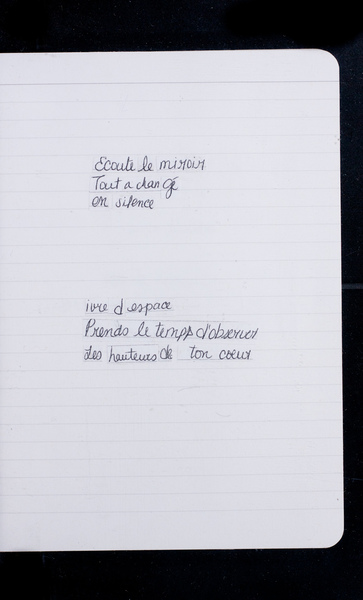 Ecoute le miroir
Tout a changé
en silence
ivre d'espace
Prends le temps d'observer
des hauteurs de ton coeur